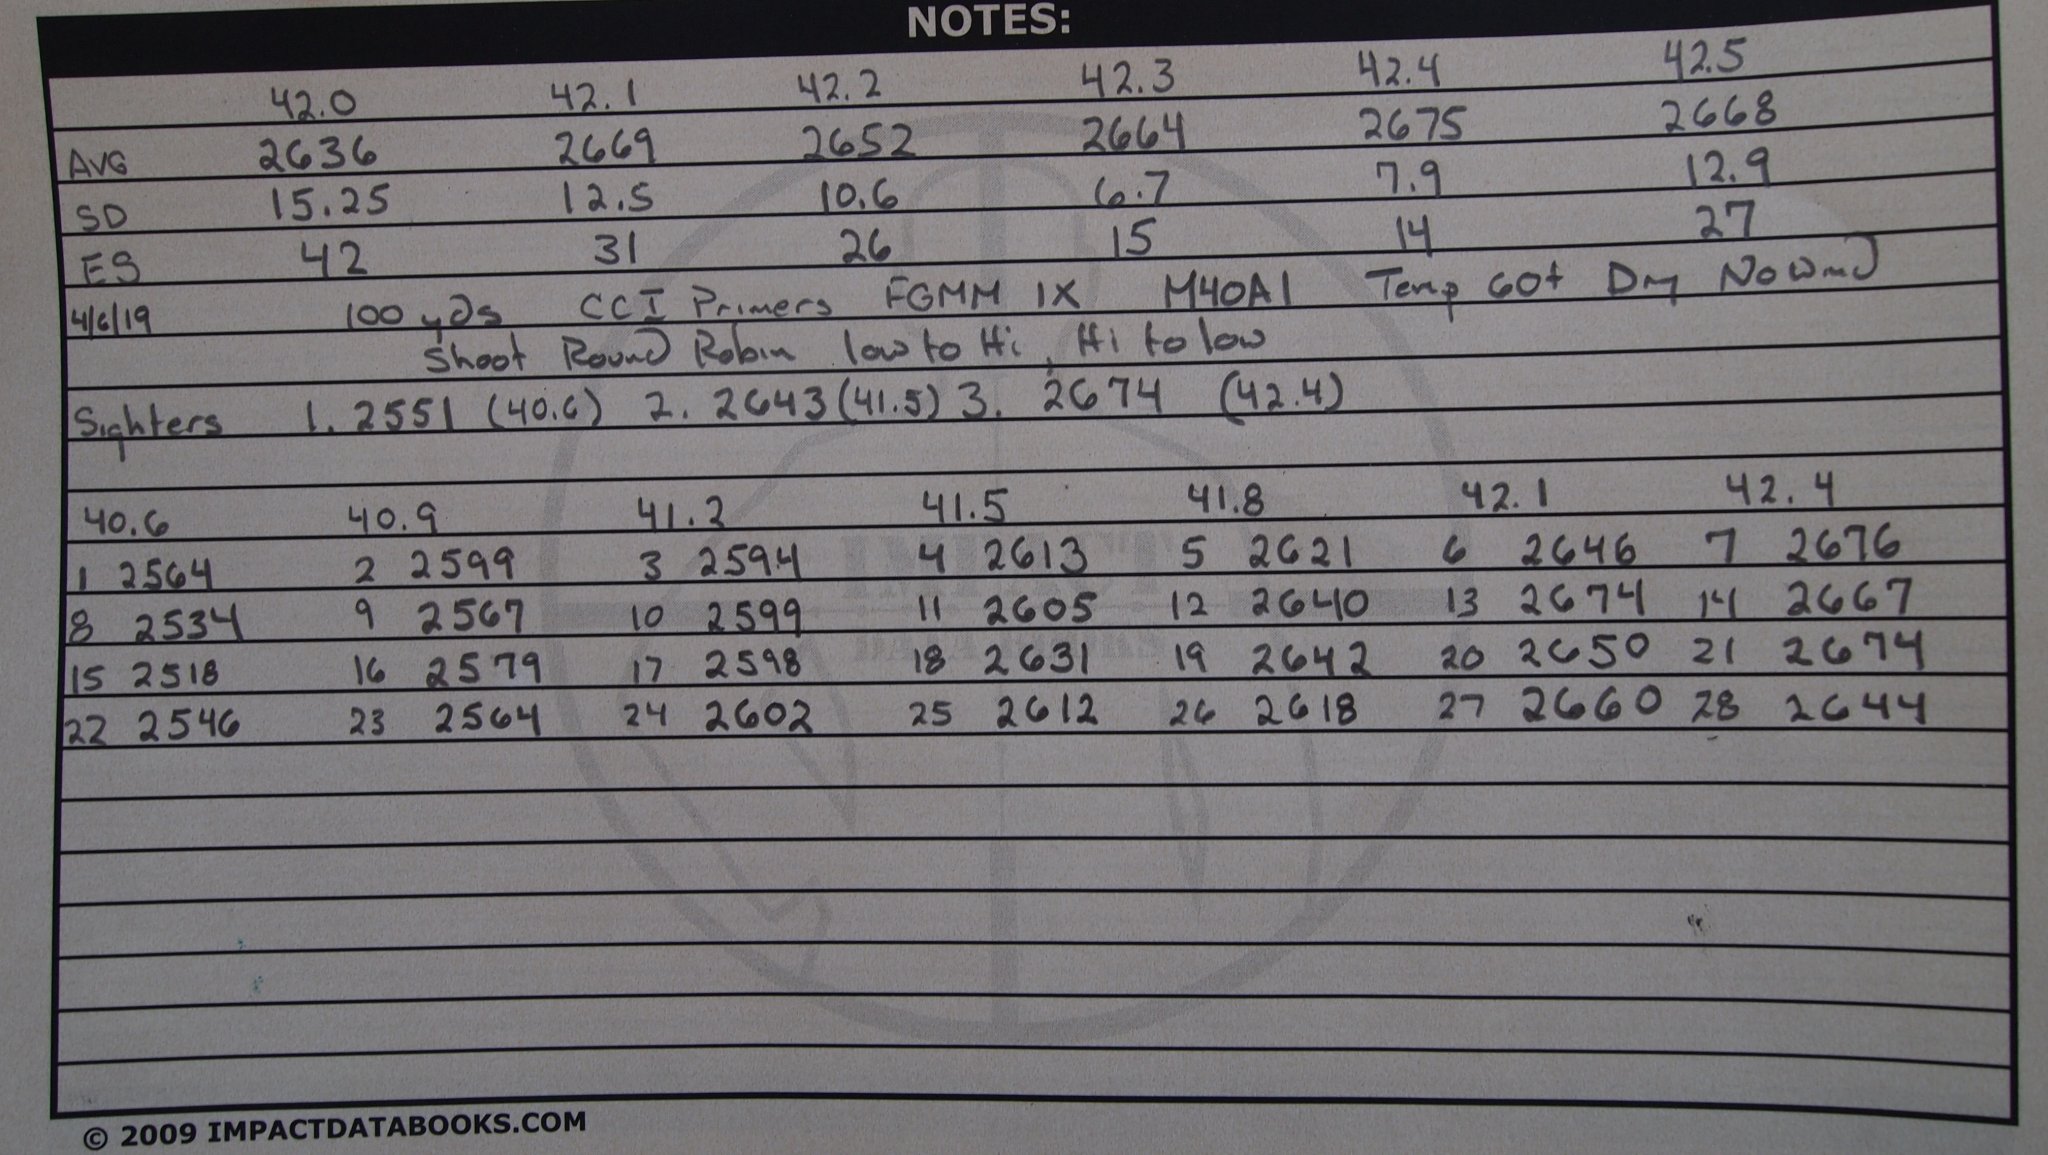 NOTES:
42.0 42.1 42.2 42.3 42.4 42.5
AVG 2636 2669 2652 2664 2675 2668
SD 15.25 12.5 10.6 6.7 7.9 12.9
ES 42 31 26 15 14 27
4/6/19 100 yds CCI Primers FGMM 1X M40A1 Temp 60+ Dry No Wind
Shoot Round Robin low to Hi, Hi to low
Sighters 1. 2551 (40.6) 2. 2643 (41.5) 3. 2674 (42.4)
40.6 40.9 41.2 41.5 41.8 42.1 42.4
1 2564 2 2599 3 2594 4 2613 5 2621 6 2646 7 2676
8 2534 9 2567 10 2599 11 2605 12 2640 13 2674 14 2667
15 2518 16 2579 17 2598 18 2631 19 2642 20 2650 21 2674
22 2546 23 2564 24 2602 25 2612 26 2618 27 2660 28 2644
IMPACT
DATA BOOKS
© 2009 IMPACTDATABOOKS.COM